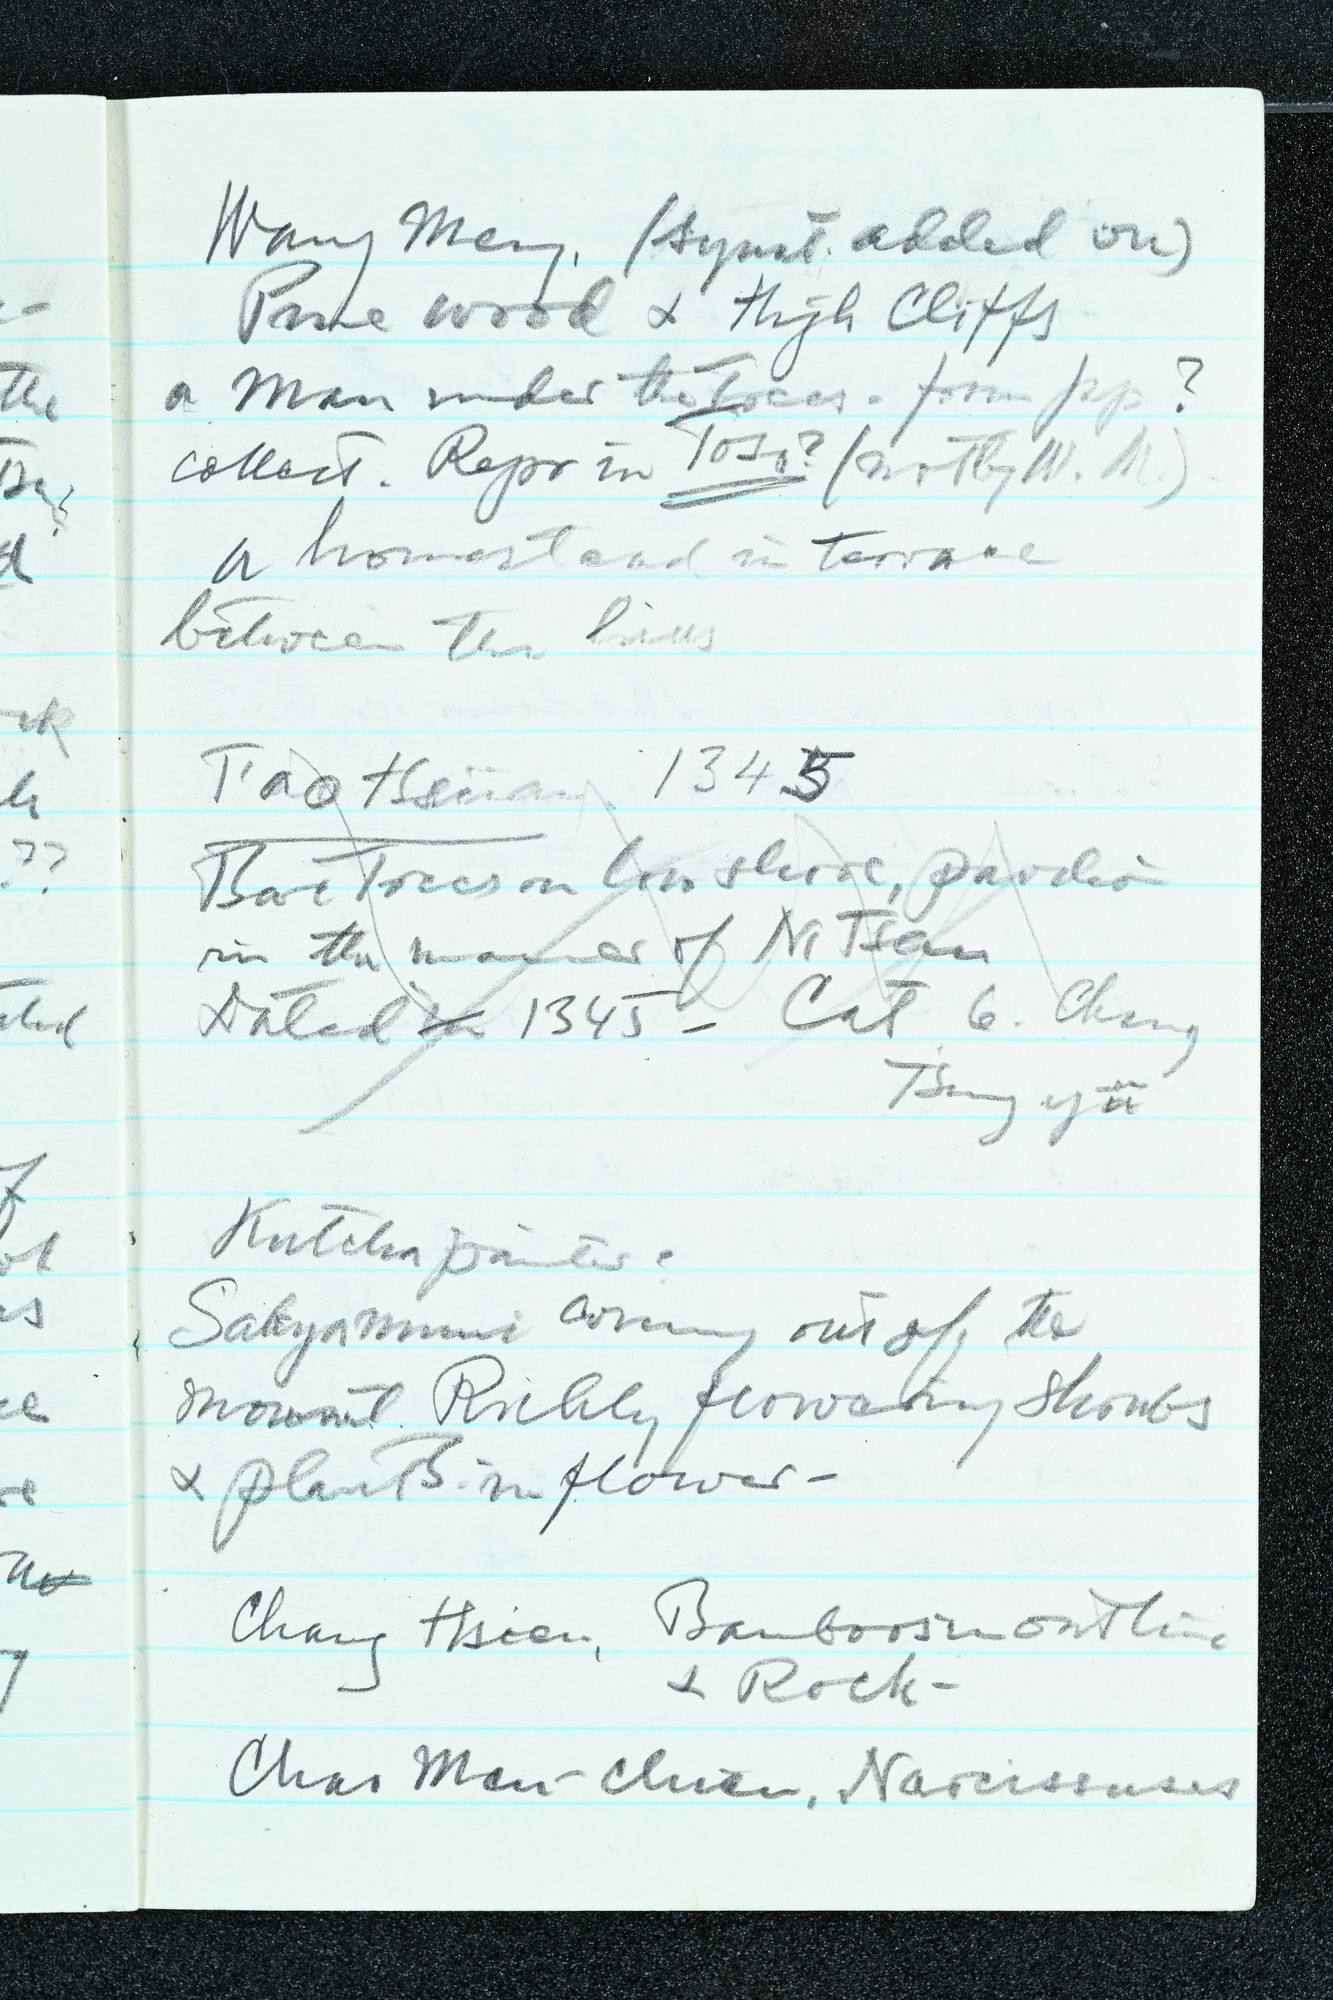 Wang Meng. (signat. added on)
Pine wood & High Cliffs
a Man under the Trees. form jap ?
collect. Repr in Toso? (not by W. M.)
a homestead in terrace
between the hills
T'ao Hsüan 1345
Bare Trees on low shore, pavilion
in the manner of Ni Tsan
Dated in 1345 - Cat 6. Chang
Tsung yü
Kutcha painter:
Sakyamuni coming out of the
mount. Richly flowering shrubs
& plants in flower -
Chang Hsien, Bamboos in outline
& Rock -
Chao Men-chien, Narcissuses
-
the
ck
??
ated
of
as